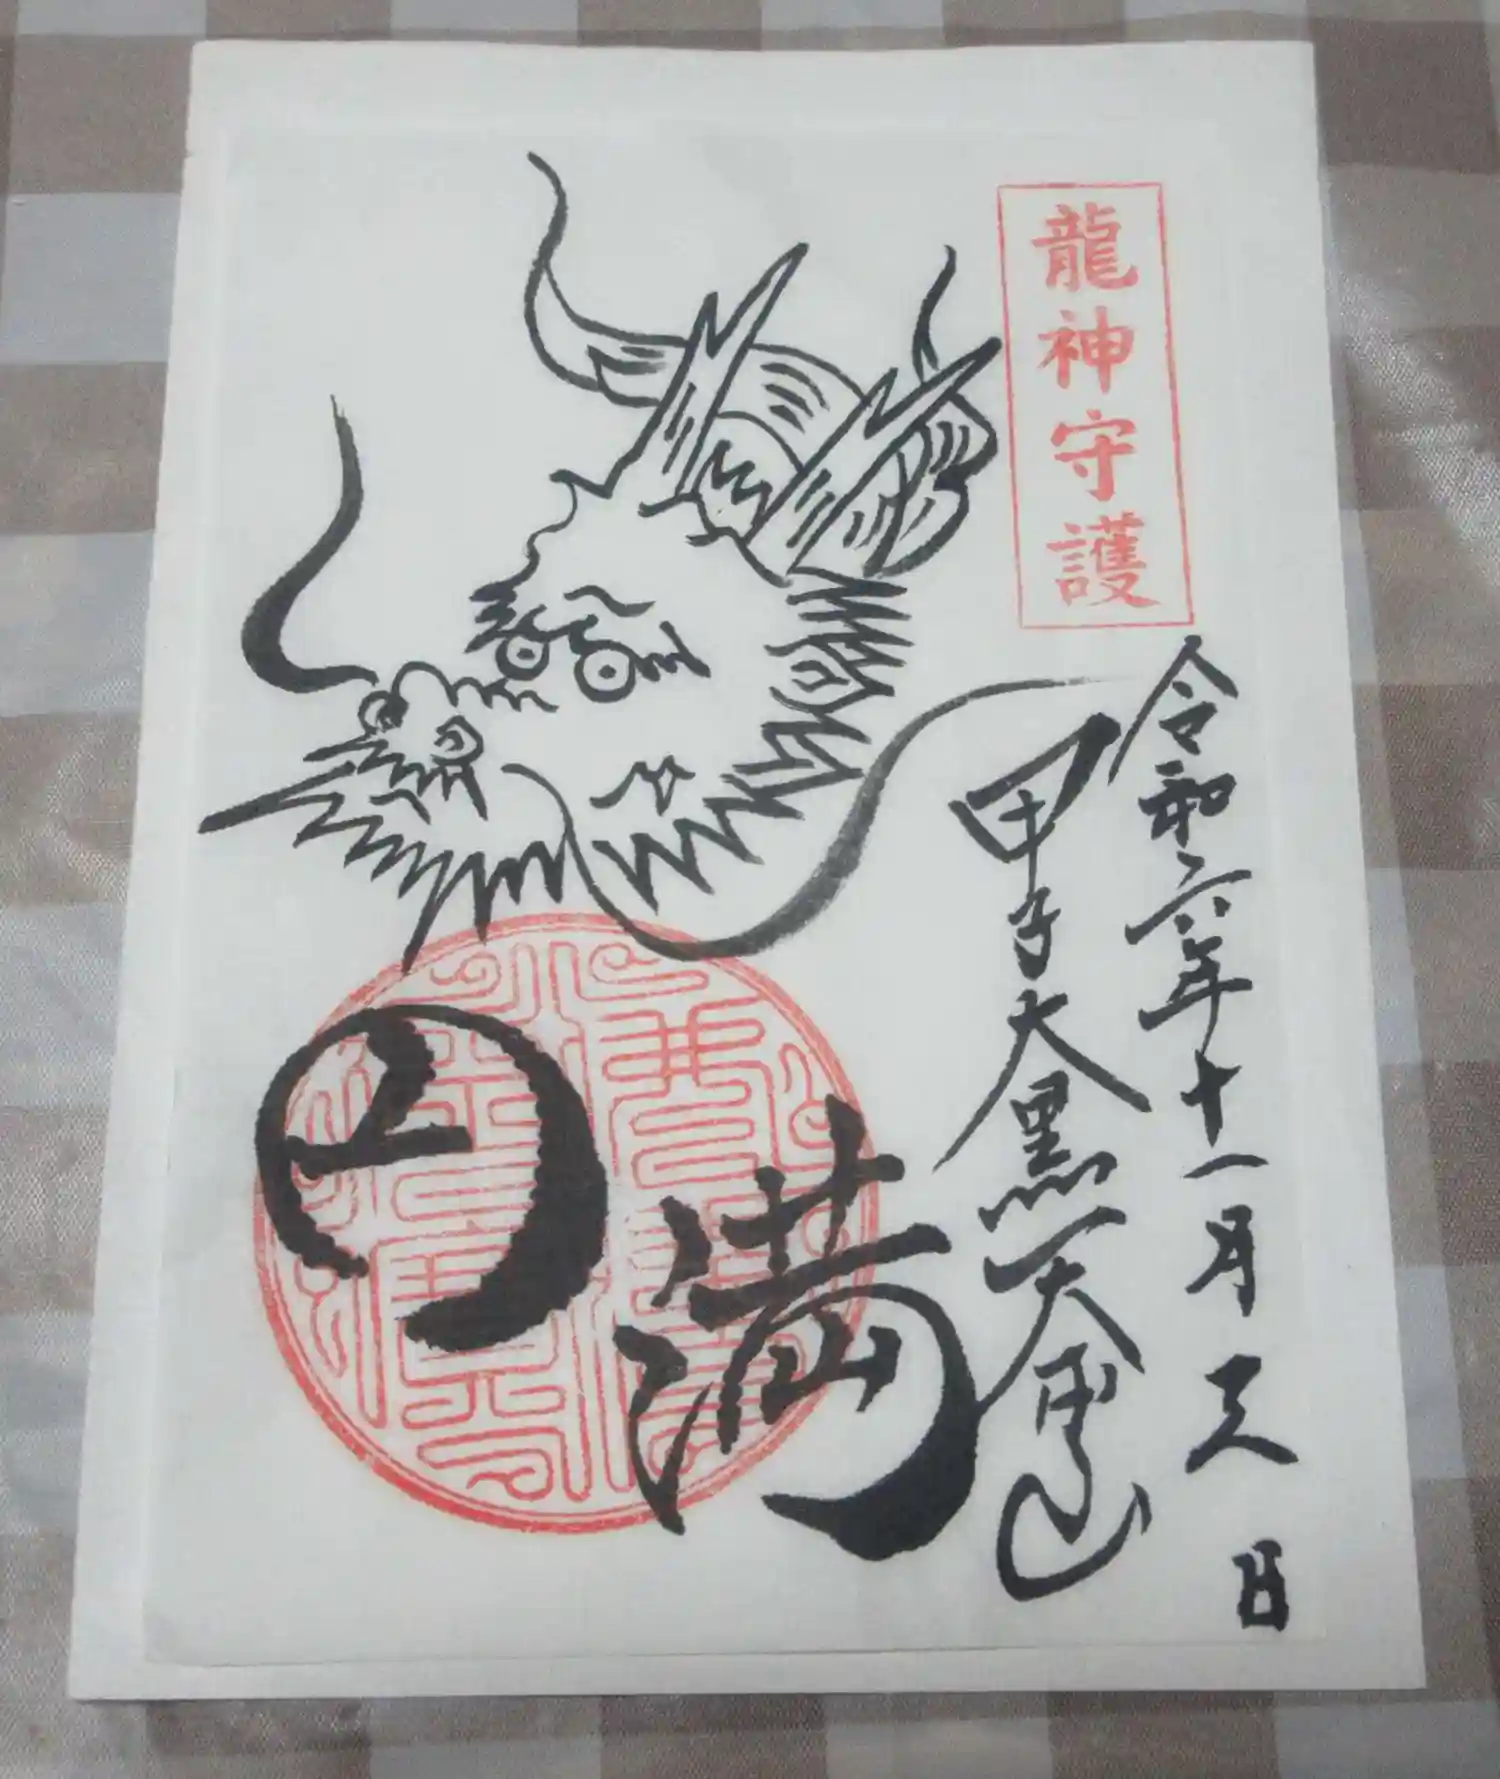 龍神守護
令和六年十一月 日
甲子大黒天本山
円満